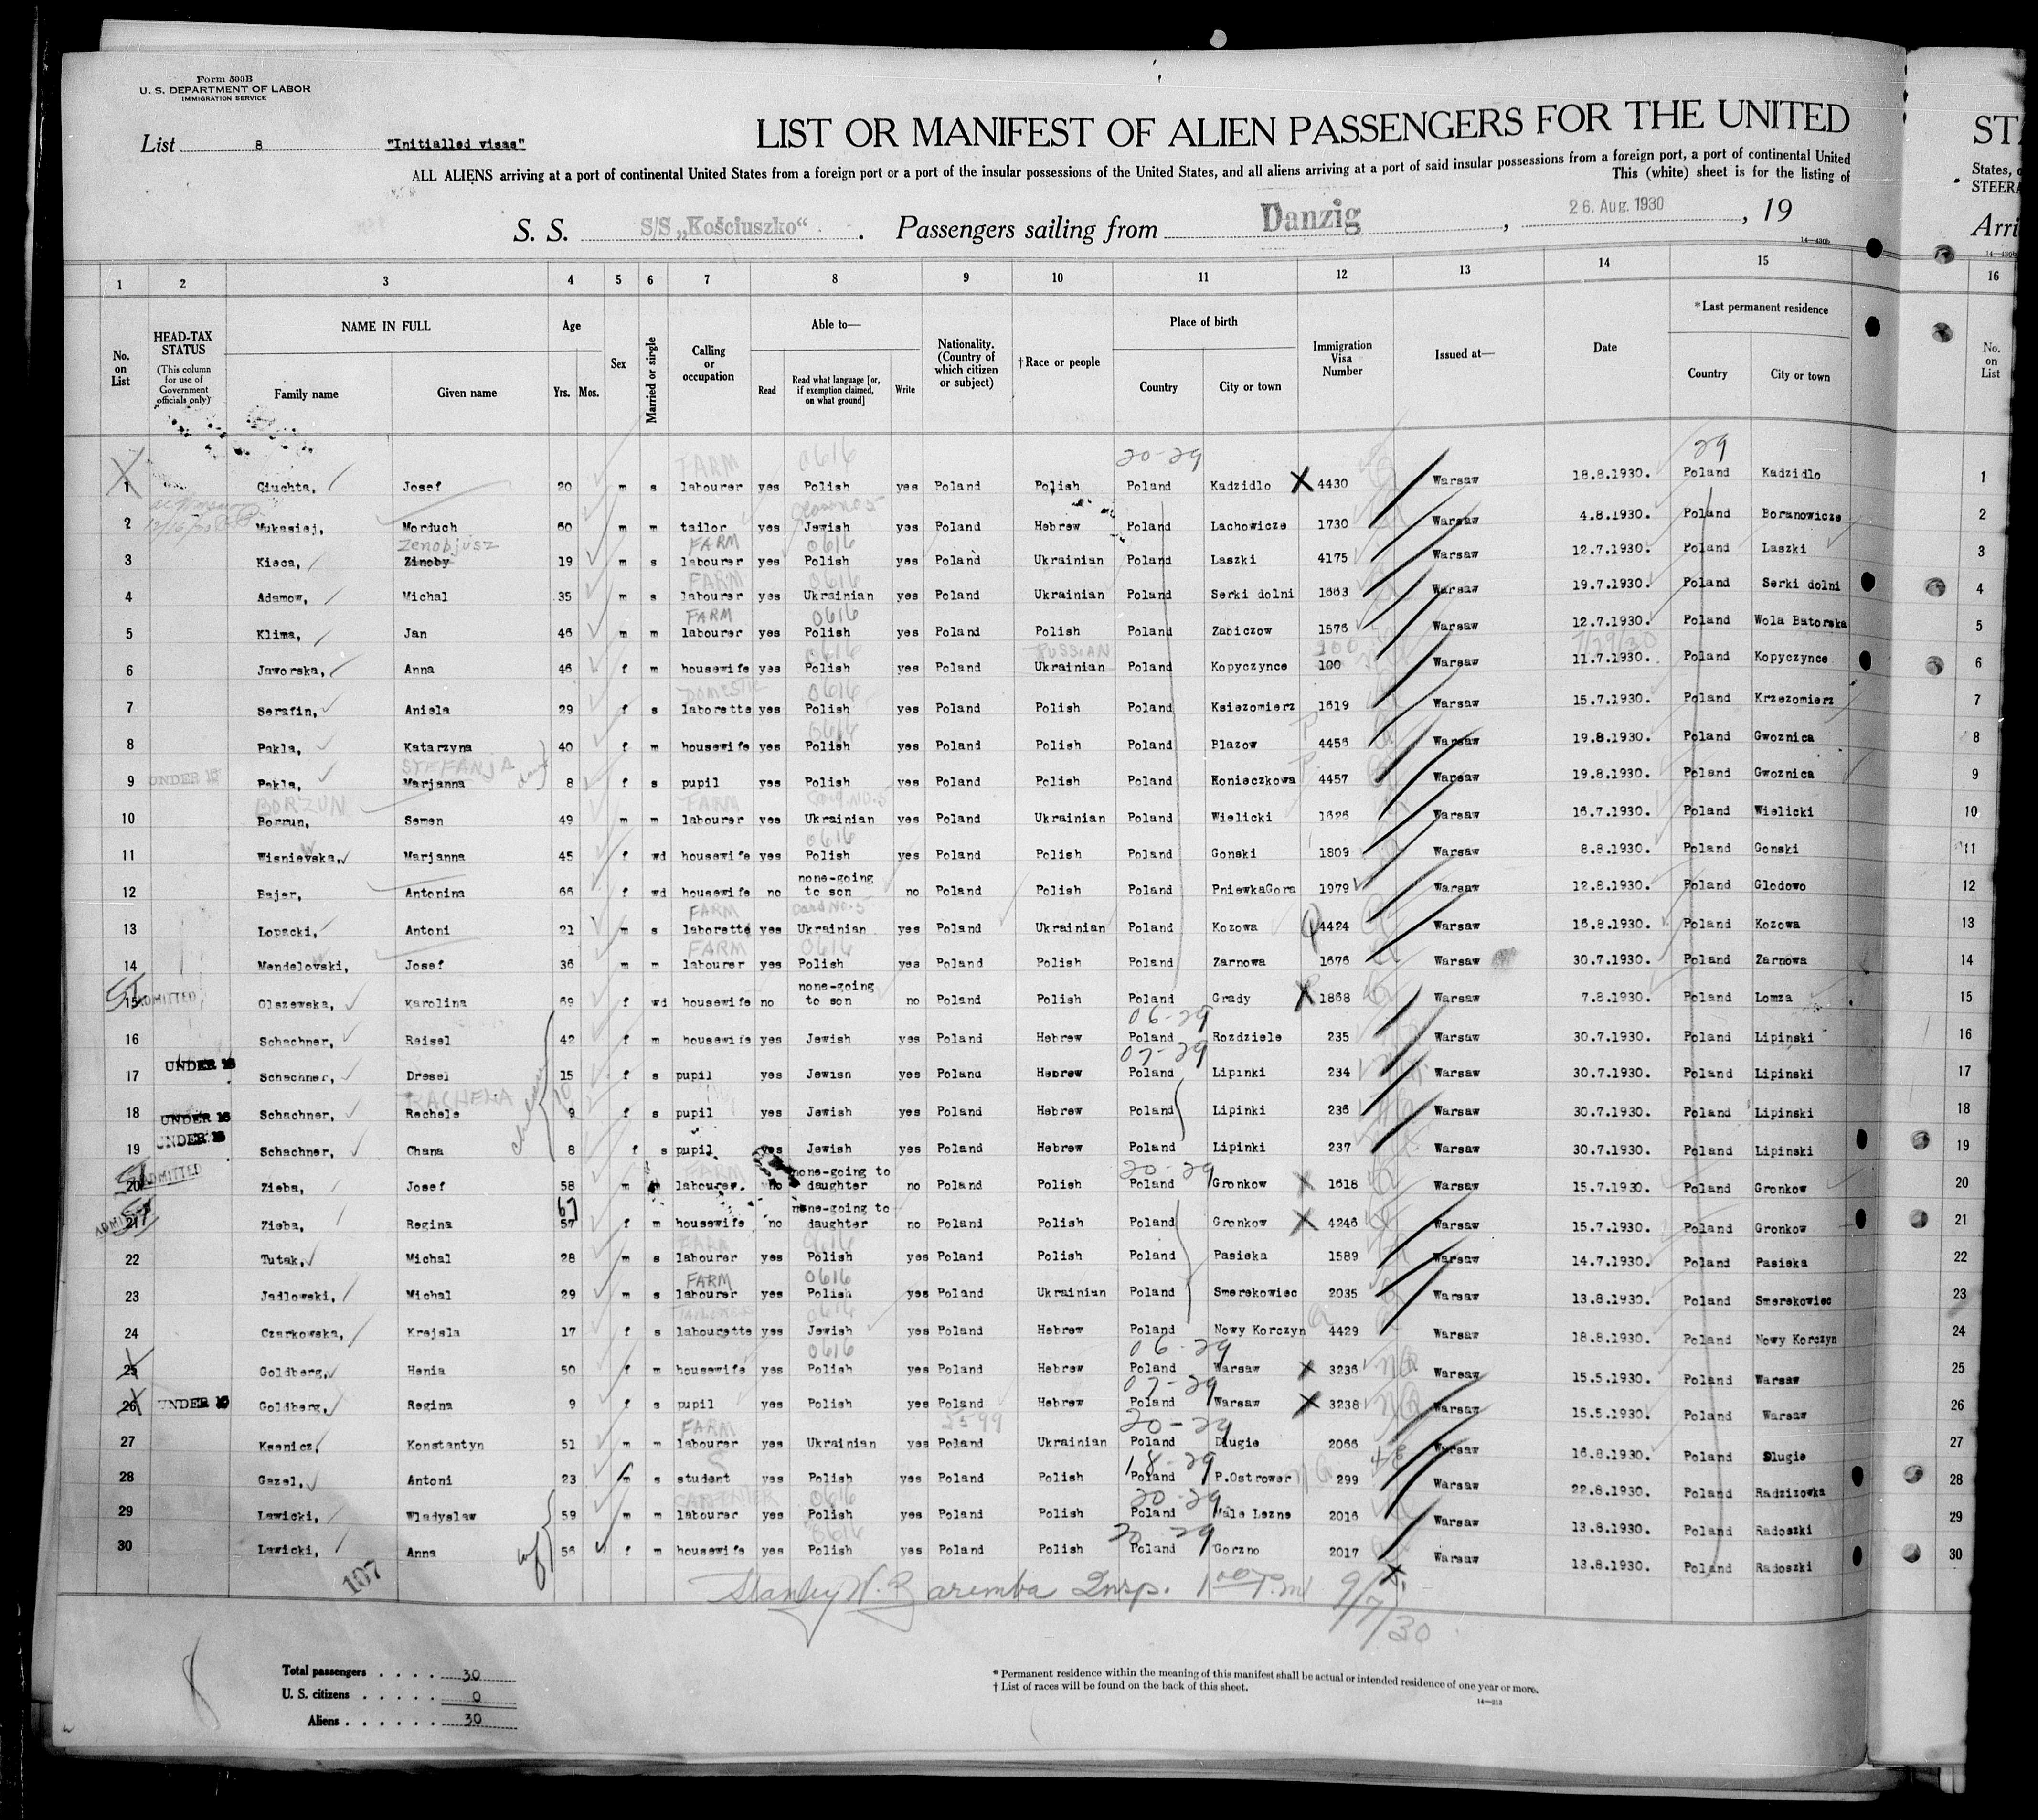 Form 500B
U. S. DEPARTMENT OF LABOR
IMMIGRATION SERVICE
List 8 "Initialled visas"
LIST OR MANIFEST OF ALIEN PASSENGERS FOR THE UNITED
ALL ALIENS arriving at a port of continental United States from a foreign port or a port of the insular possessions of the United States, and all aliens arriving at a port of said insular possessions from a foreign port, a port of continental United
This (white) sheet is for the listing of
S. S. S/S „Kościuszko“ . Passengers sailing from Danzig , 26. Aug. 1930 , 19
14—430b
1 2 3 4 5 6 7 8 9 10 11 12 13 14 15
No. on List
HEAD-TAX STATUS
(This column for use of Government officials only)
NAME IN FULL
Family name Given name
Age
Yrs. Mos.
Sex
Married or single
Calling or occupation
Able to—
Read
Read what language [or, if exemption claimed, on what ground]
Write
Nationality. (Country of which citizen or subject)
† Race or people
Place of birth
Country City or town
Immigration Visa Number
Issued at—
Date
* Last permanent residence
Country City or town
FARM 0616 20-29 29
1 Giuchta, Josef 20 m s labourer yes Polish yes Poland Polish Poland Kadzidlo X 4430 Warsaw 18.8.1930. Poland Kadzidlo
2 Mukasiej, Morduch 60 m m tailor yes Jewish yes Poland Hebrew Poland Lachowicze 1730 Warsaw 4.8.1930. Poland Boranowicze
Zenobjusz FARM 0616
3 Kieca, Zinoby 19 m s labourer yes Polish yes Poland Ukrainian Poland Laszki 4175 Warsaw 12.7.1930. Poland Laszki
FARM 0616
4 Adamow, Michal 35 m s labourer yes Ukrainian yes Poland Ukrainian Poland Serki dolni 1663 Warsaw 19.7.1930. Poland Serki dolni
FARM 0616
5 Klima, Jan 46 m m labourer yes Polish yes Poland Polish Poland Zabiczow 1576 Warsaw 12.7.1930. Poland Wola Batorska
0616 RUSSIAN 300 7/29/30
6 Jaworska, Anna 46 f m housewife yes Polish yes Poland Ukrainian Poland Kopyczynce 100 Warsaw 11.7.1930. Poland Kopyczynce
DOMESTIC 0616
7 Serafin, Aniela 29 f s laborette yes Polish yes Poland Polish Poland Ksiezomierz 1619 Warsaw 15.7.1930. Poland Krzezomierz
0616
8 Pakla, Katarzyna 40 f m housewife yes Polish yes Poland Polish Poland Blazow 4456 Warsaw 19.8.1930. Poland Gwoznica
STEFANJA
9 UNDER 16 Pakla, Marjanna 8 f s pupil yes Polish yes Poland Polish Poland Konieczkowa 4457 Warsaw 19.8.1930. Poland Gwoznica
BORZUN FARM Card No. 5
10 Borrun, Semen 49 m m labourer yes Ukrainian yes Poland Ukrainian Poland Wielicki 1626 Warsaw 16.7.1930. Poland Wielicki
0616
11 Wisnievska, Marjanna 45 f wd housewife yes Polish yes Poland Polish Poland Gonski 1809 Warsaw 8.8.1930. Poland Gonski
12 Bajer, Antonina 66 f wd housewife no none-going to son no Poland Polish Poland PniewkaGora 1979 Warsaw 12.8.1930. Poland Glodowo
FARM Card No. 5
13 Lopacki, Antoni 21 m s laborette yes Ukrainian yes Poland Ukrainian Poland Kozowa 4424 Warsaw 16.8.1930. Poland Kozowa
FARM 0616
14 Mendelovski, Josef 36 m m labourer yes Polish yes Poland Polish Poland Zarnowa 1676 Warsaw 30.7.1930. Poland Zarnowa
15 ADMITTED Olszewska, Karolina 69 f wd housewife no none-going to son no Poland Polish Poland Grady X 1868 Warsaw 7.8.1930. Poland Lomza
06-29
16 Schachner, Reisel 42 f m housewife yes Jewish yes Poland Hebrew Poland Rozdziele 235 Warsaw 30.7.1930. Poland Lipinski
07-29
17 UNDER 16 Schachner, Dresel 15 f s pupil yes Jewish yes Poland Hebrew Poland Lipinki 234 Warsaw 30.7.1930. Poland Lipinski
RACHELA 10
18 UNDER 16 Schachner, Rachele 9 f s pupil yes Jewish yes Poland Hebrew Poland Lipinki 236 Warsaw 30.7.1930. Poland Lipinski
19 UNDER 16 Schachner, Chana 8 f s pupil yes Jewish yes Poland Hebrew Poland Lipinki 237 Warsaw 30.7.1930. Poland Lipinski
FARM 20-29
20 ADMITTED Zieba, Josef 58 m m labourer. no none-going to daughter no Poland Polish Poland Gronkow X 1618 Warsaw 15.7.1930. Poland Gronkow
67
21 ADMITTED Zieba, Regina 57 f m housewife no none-going to daughter no Poland Polish Poland Gronkow X 4246 Warsaw 15.7.1930. Poland Gronkow
FARM 0616
22 Tutak, Michal 28 m s labourer yes Polish yes Poland Polish Poland Pasieka 1589 Warsaw 14.7.1930. Poland Pasieka
FARM 0616
23 Jadlowski, Michal 29 m s labourer yes Polish yes Poland Ukrainian Poland Smerekowiec 2035 Warsaw 13.8.1930. Poland Smerekowiec
0616
24 Czarkowska, Krejsla 17 f s labourette yes Jewish yes Poland Hebrew Poland Nowy Korczyn 4429 Warsaw 18.8.1930. Poland Nowy Korczyn
0616 06-29
25 Goldberg, Henia 50 f m housewife yes Polish yes Poland Hebrew Poland Warsaw X 3236 Warsaw 15.5.1930. Poland Warsaw
07-29
26 UNDER 16 Goldberg, Regina 9 f s pupil yes Polish yes Poland Hebrew Poland Warsaw X 3238 Warsaw 15.5.1930. Poland Warsaw
FARM 2599 20-29
27 Ksenicz, Konstantyn 51 m m labourer yes Ukrainian yes Poland Ukrainian Poland Dlugie 2066 Warsaw 16.8.1930. Poland Slugie
18-29
28 Gazel, Antoni 23 m s student yes Polish yes Poland Polish Poland P.Ostrower 299 Warsaw 22.8.1930. Poland Radzizowka
CARPENTER 0616 20-29
29 Lawicki, Wladyslaw 59 m m labourer yes Polish yes Poland Polish Poland Male Lezne 2016 Warsaw 13.8.1930. Poland Radoszki
0616 20-29
30 Lawicki, Anna 56 f m housewife yes Polish yes Poland Polish Poland Gorzno 2017 Warsaw 13.8.1930. Poland Radoszki
107
Stanley W. Zaremba Insp. 1 00 P.m 9/7/30
Total passengers . . . . 30
U. S. citizens . . . . . 0
Aliens . . . . . . 30
* Permanent residence within the meaning of this manifest shall be actual or intended residence of one year or more.
† List of races will be found on the back of this sheet.
14—213
STA
States, o
STEERA
Arri
14—430b
16
No. on List
1
2
3
4
5
6
7
8
9
10
11
12
13
14
15
16
17
18
19
20
21
22
23
24
25
26
27
28
29
30